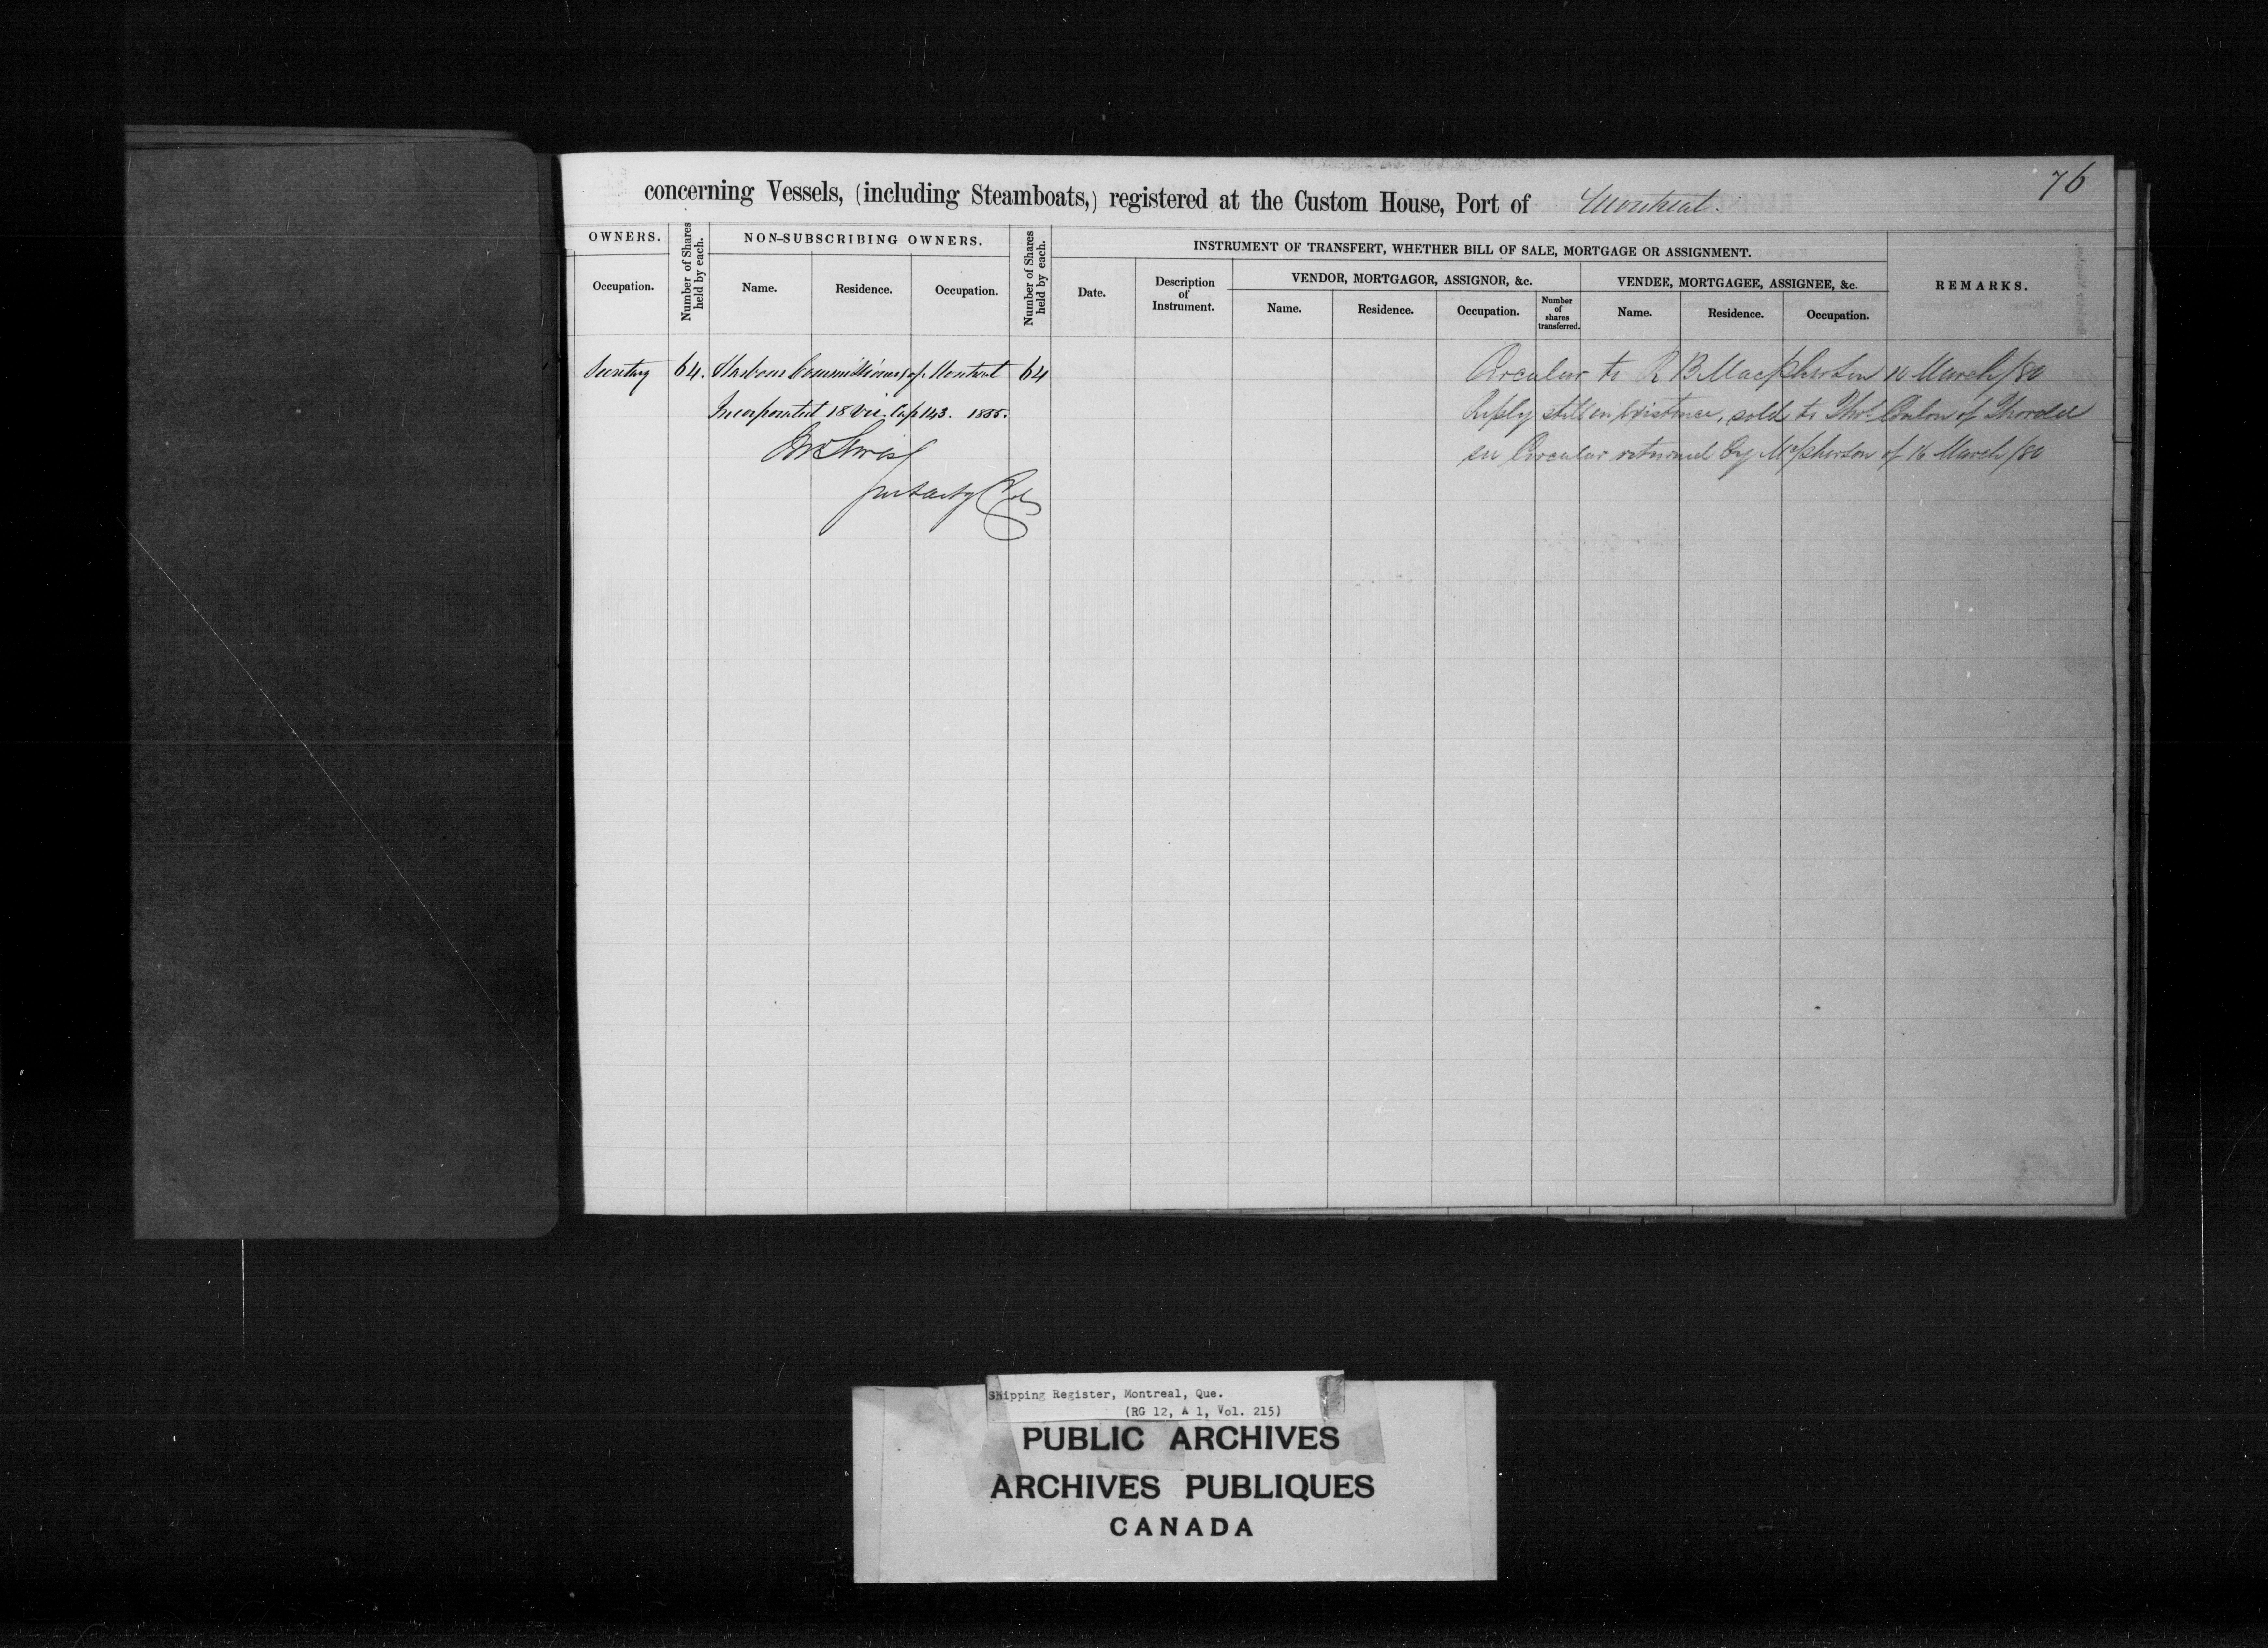 76
concerning Vessels, (including Steamboats,) registered at the Custom House, Port of Montreal.
OWNERS.
Number of Shares held by each.
NON-SUBSCRIBING OWNERS.
Number of Shares held by each.
INSTRUMENT OF TRANSFERT, WHETHER BILL OF SALE, MORTGAGE OR ASSIGNMENT.
REMARKS.
Occupation.
Name.
Residence.
Occupation.
Date.
Description of Instrument.
VENDOR, MORTGAGOR, ASSIGNOR, &c.
VENDEE, MORTGAGEE, ASSIGNEE, &c.
Name.
Residence.
Occupation.
Number of shares transferred.
Name.
Residence.
Occupation.
Secretary 64. Harbour Commissioners of Montreal 64 Circular to R B Macpherson 10 March/80
Incorporated 18 Vic. Cap 143. 1855. still in Existence, sold to Thos. Conlon of Thorold
Circular returned by McPherson of 16 March/80
Shipping Register, Montreal, Que.
(RG 12, A 1, Vol. 215)
PUBLIC ARCHIVES
ARCHIVES PUBLIQUES
CANADA